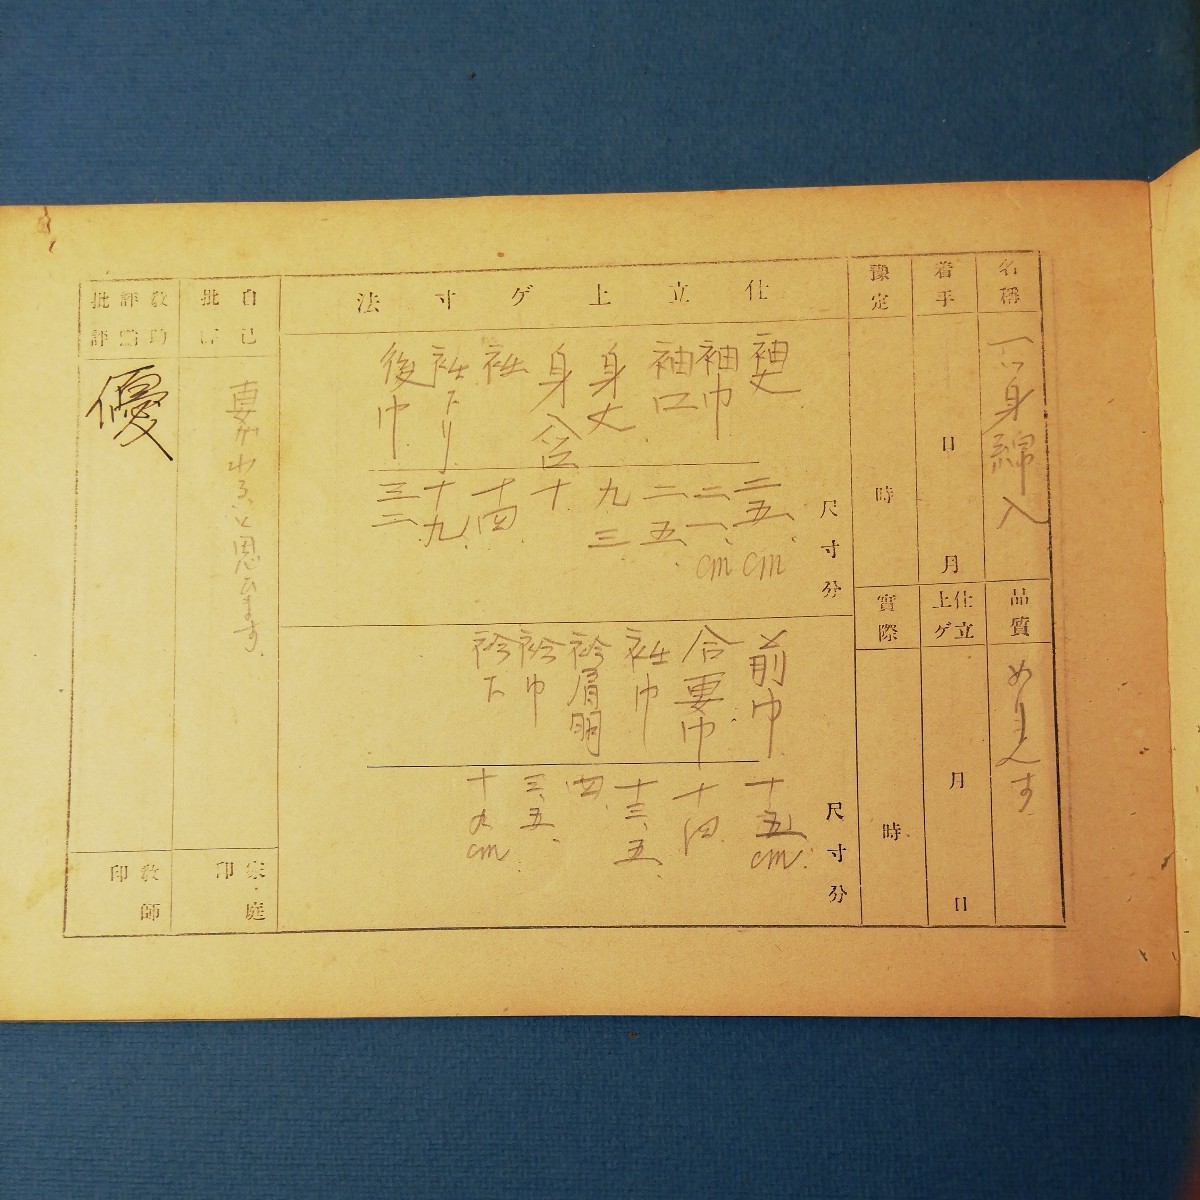 名稱
一つ身綿入
品質
めりんす
着手
日
月
仕立上ゲ
月
日
豫定
時
實際
時
仕立上ゲ寸法
尺寸分
袖丈 二五.cm
袖巾 二一.cm
袖口 二五.
身丈 九三.
身八ツ 十
衽 十四.
衽下り 十九.
後巾 三二
尺寸分
前巾 十五cm
合要巾 十四
衽巾 十三.五
衿肩明 四.
衿巾 三.五
衿下 十九cm
自己批評
と思ひます
家庭印
批評
優
教師印